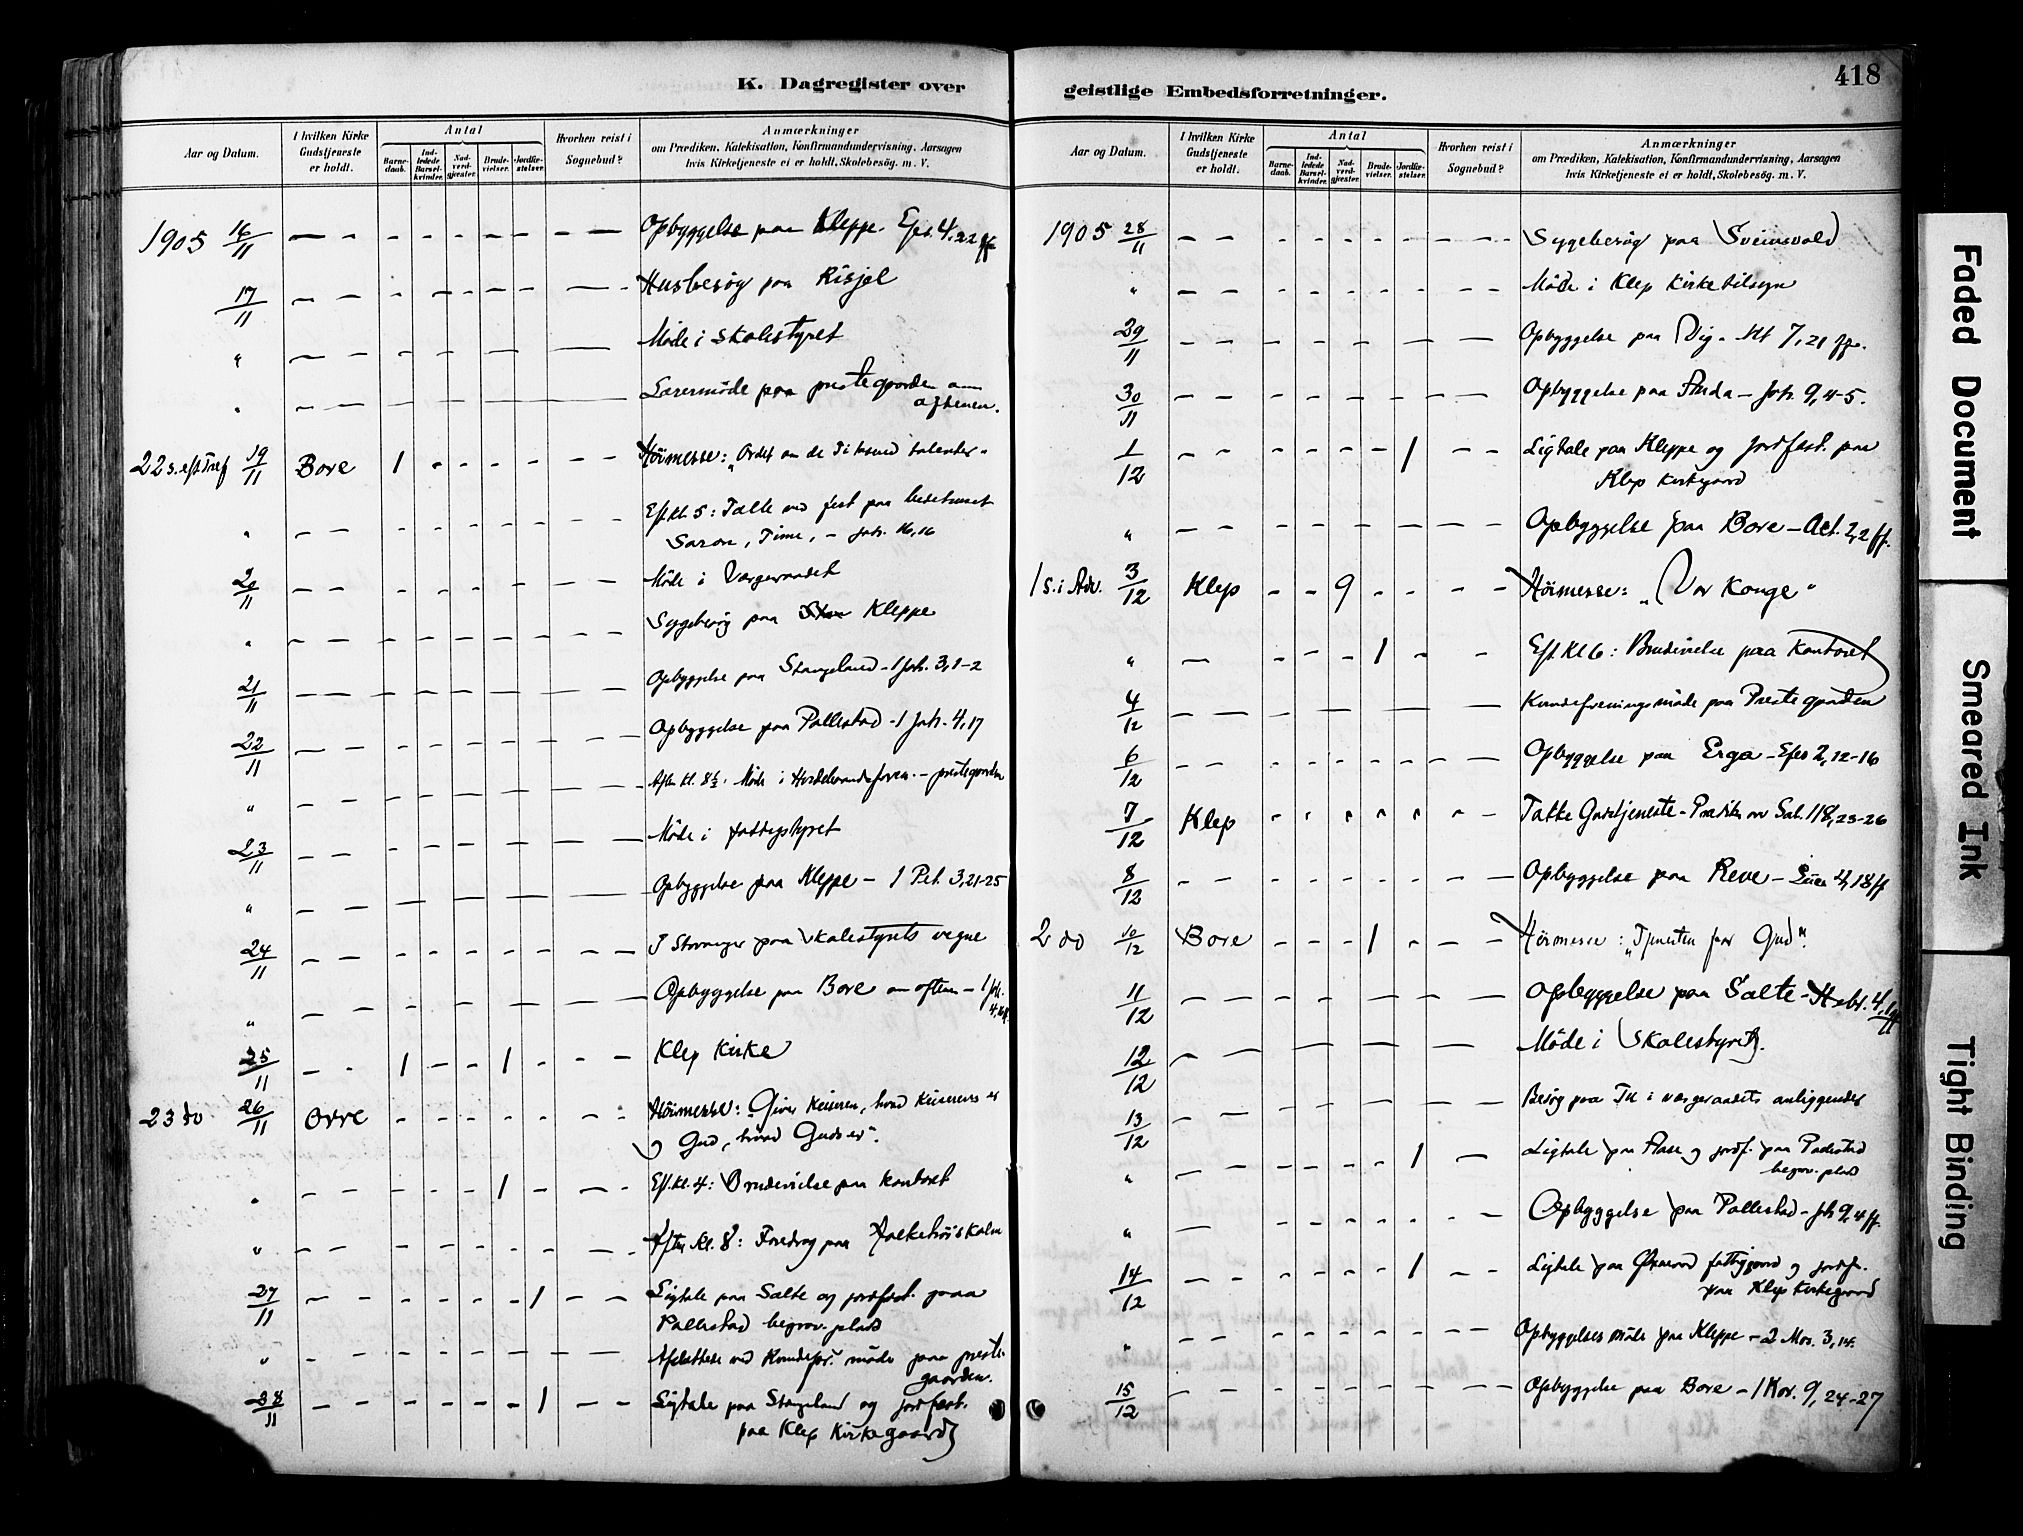 K. Dagregister over
Aar og Datum.
I hvilken Kirke Gudstjeneste er holdt.
Antal
Barnedaab.
Indledede Barselkvinder.
Nadverdgjæster.
Brudevielser.
Jordfæstelser.
Hvorhen reist i Sognebud?
Anmærkninger
om Prædiken, Katekisation, Konfirmandundervisning, Aarsagen
hvis Kirketjeneste ei er holdt, Skolebesög. m. V.
1905 16/11 Opbyggelse paa Kleppe. Efes. 4,22 ff
17/11 Husbesøg paa Risjel
" Møde i skolestyret
" Lærermøde paa prestegaarden om
aftenen.
22 s. eft Tref 19/11 Bore 1 Høimesse: „Ordet om de Ti tusind talenter"
" Eft. kl. 5: Talte ved fest paa bedehuset
Saron, Time, - Joh. 16,16
20/11 Møde i Værgeraadet
" Sygebesøg paa Kleppe
21/11 Opbyggelse paa Stangeland - 1 Joh. 3,1-2
22/11 Opbyggelse paa Pallestad - 1 Joh. 4,17
" Aften kl. 8½. Møde i - prestegaarden
23/11 Møde i fattigstyret
" Opbyggelse paa Kleppe - 1 Pet. 3,21-25
24/11 I Stavanger paa skolestyrets vegne
" Opbyggelse paa Bore om aften - 1 Joh.
25/11 1 1 Klep Kirke
23 do 26/11 Orre Høimesse: „Giver Keiseren, hvad Keiserens er
og Gud, hvad Guds er".
" Eft. kl. 4: Brudevielse paa kontoret
" Aften kl. 8: Foredrag paa Folkehøiskolen
27/11 1 Ligtale paa Salte og jordfæst. paa
Pallestad begrav. plads
" ved Kvindefor. møde paa preste-
gaarden.
28/11 1 Ligtale paa Stangeland og jordfæst.
paa Klep Kirkegaard
geistlige Embedsforretninger.
418
Aar og Datum.
I hvilken Kirke Gudstjeneste er holdt.
Antal
Barnedaab.
Indledede Barselkvinder.
Nadverdgjæster.
Brudevielser.
Jordfæstelser.
Hvorhen reist i Sognebud?
Anmærkninger
om Prædiken, Katekisation, Konfirmandundervisning, Aarsagen
hvis Kirketjeneste ei er holdt, Skolebesög. m. V.
1905 28/11 Sygebesøg paa Sveinsvold
" Møde i Klep Kirketilsyn
29/11 Opbyggelse paa Vig. Mt 7,21 ff.
30/11 Opbyggelse paa Anda - Joh. 9,4-5.
1/12 1 Ligtale paa Kleppe og jordfæst. paa
Klep Kirkegaard
" Opbyggelse paa Bore - Act. 2,2 ff.
1 s. i Adv. 3/12 Klep 9 Høimesse: „Vor Konge"
" 1 Eft. Kl 6: Brudevielse paa Kontoret
4/12 Kvindeforeningsmøde paa Prestegaarden
6/12 Opbyggelse paa Erga - Efes 2,12-16
7/12 Klep Takke Gudstjeneste - Prædiken over Sal. 118,23-26
8/12 Opbyggelse paa Reve - Luc 4,18 ff
2 do 10/12 Bore 1 Høimesse: „Tjenesten for Gud".
11/12 Opbyggelse paa Salte - Hebr. 4,1 ff
12/12 Møde i Skolestyret.
13/12 Besøg paa Tu i værgeraadets anliggender
" 1 Ligtale paa Aase og jordf. paa Pallestad
begrav. plads
" Opbyggelse paa Pallestad - Joh 9,4 ff.
14/12 1 Ligtale paa fattiggaard og jordf.
paa Klep Kirkegaard
" Opbyggelses møde paa Kleppe - 2 Mos. 3,14.
15/12 Opbyggelse paa Bore - 1 Kor. 9,24-27
Faded Document
Smeared Ink
Tight Binding